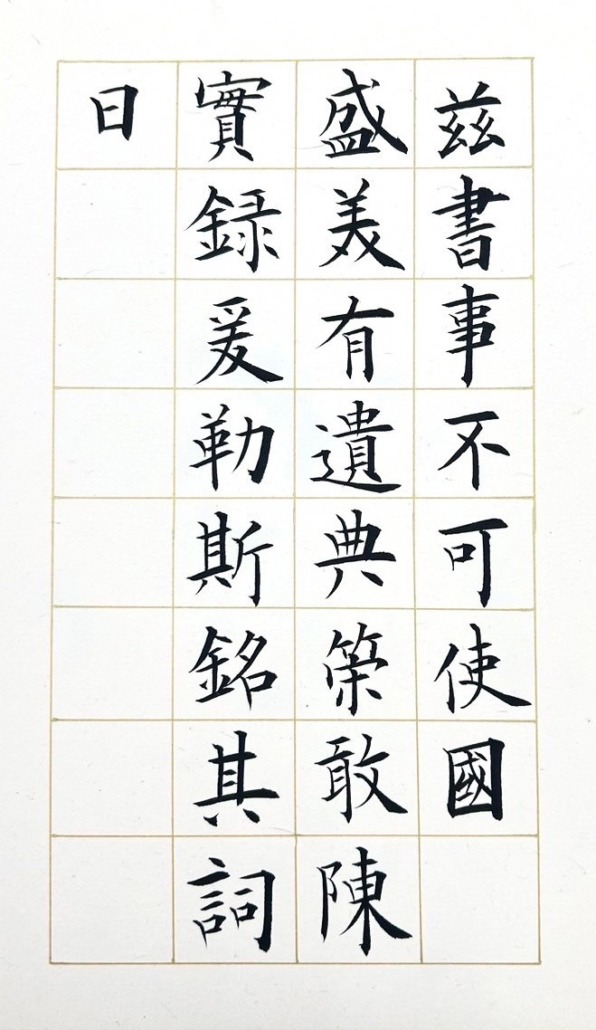 兹書事不可使國
盛美有遺典策敢陳
實録爰勒斯銘其詞
曰